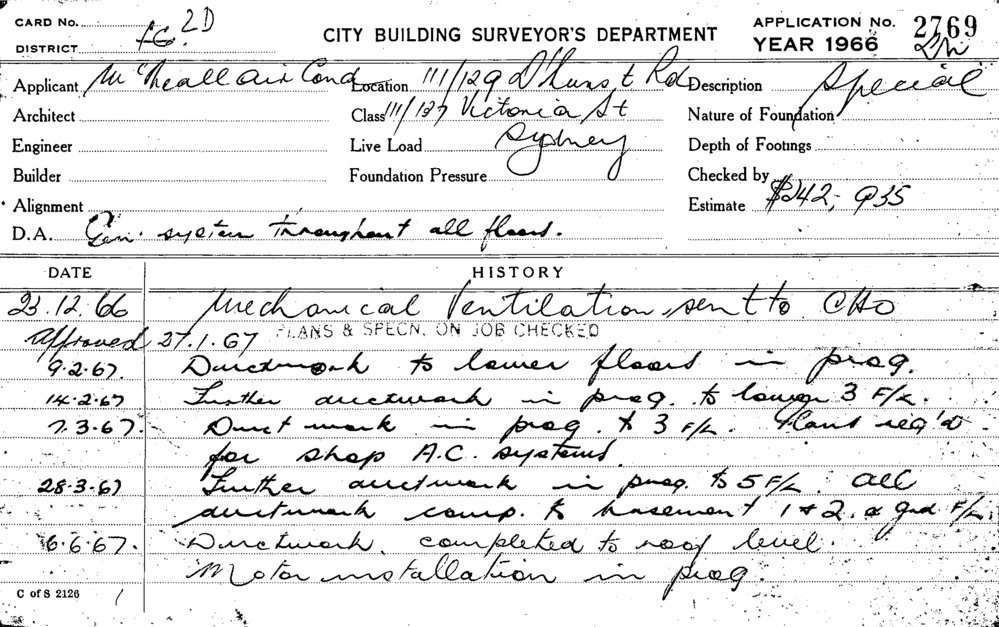 CARD No.
DISTRICT FG. 2D
CITY BUILDING SURVEYOR'S DEPARTMENT
APPLICATION No. 2769
YEAR 1966
Applicant McNeall Air Cond
Location 111/129 D'hurst Rd
Description Special
Architect
Class 111/137 Victoria St
Nature of Foundation
Engineer
Live Load Sydney
Depth of Footings
Builder
Foundation Pressure
Checked by
Alignment
Estimate $242,935
D.A. Gen. system throughout all floors.
DATE HISTORY
23.12.66 Mechanical Ventilation sent to CHO
Approved 27.1.67 PLANS & SPECN. ON JOB CHECKED
9.2.67. Ductwork to lower floors in prog.
14.2.67 Further ductwork in prog. to lower 3 F/L.
7.3.67. Duct work in prog. to 3 F/L. Plans req'd
for shop A.C. systems.
28.3.67 Further ductwork in prog. to 5 F/L. All
ductwork comp. to basement 1 & 2. & gnd F/L.
6.6.67. Ductwork completed to roof level.
Motor installation in prog.
C of S 2126